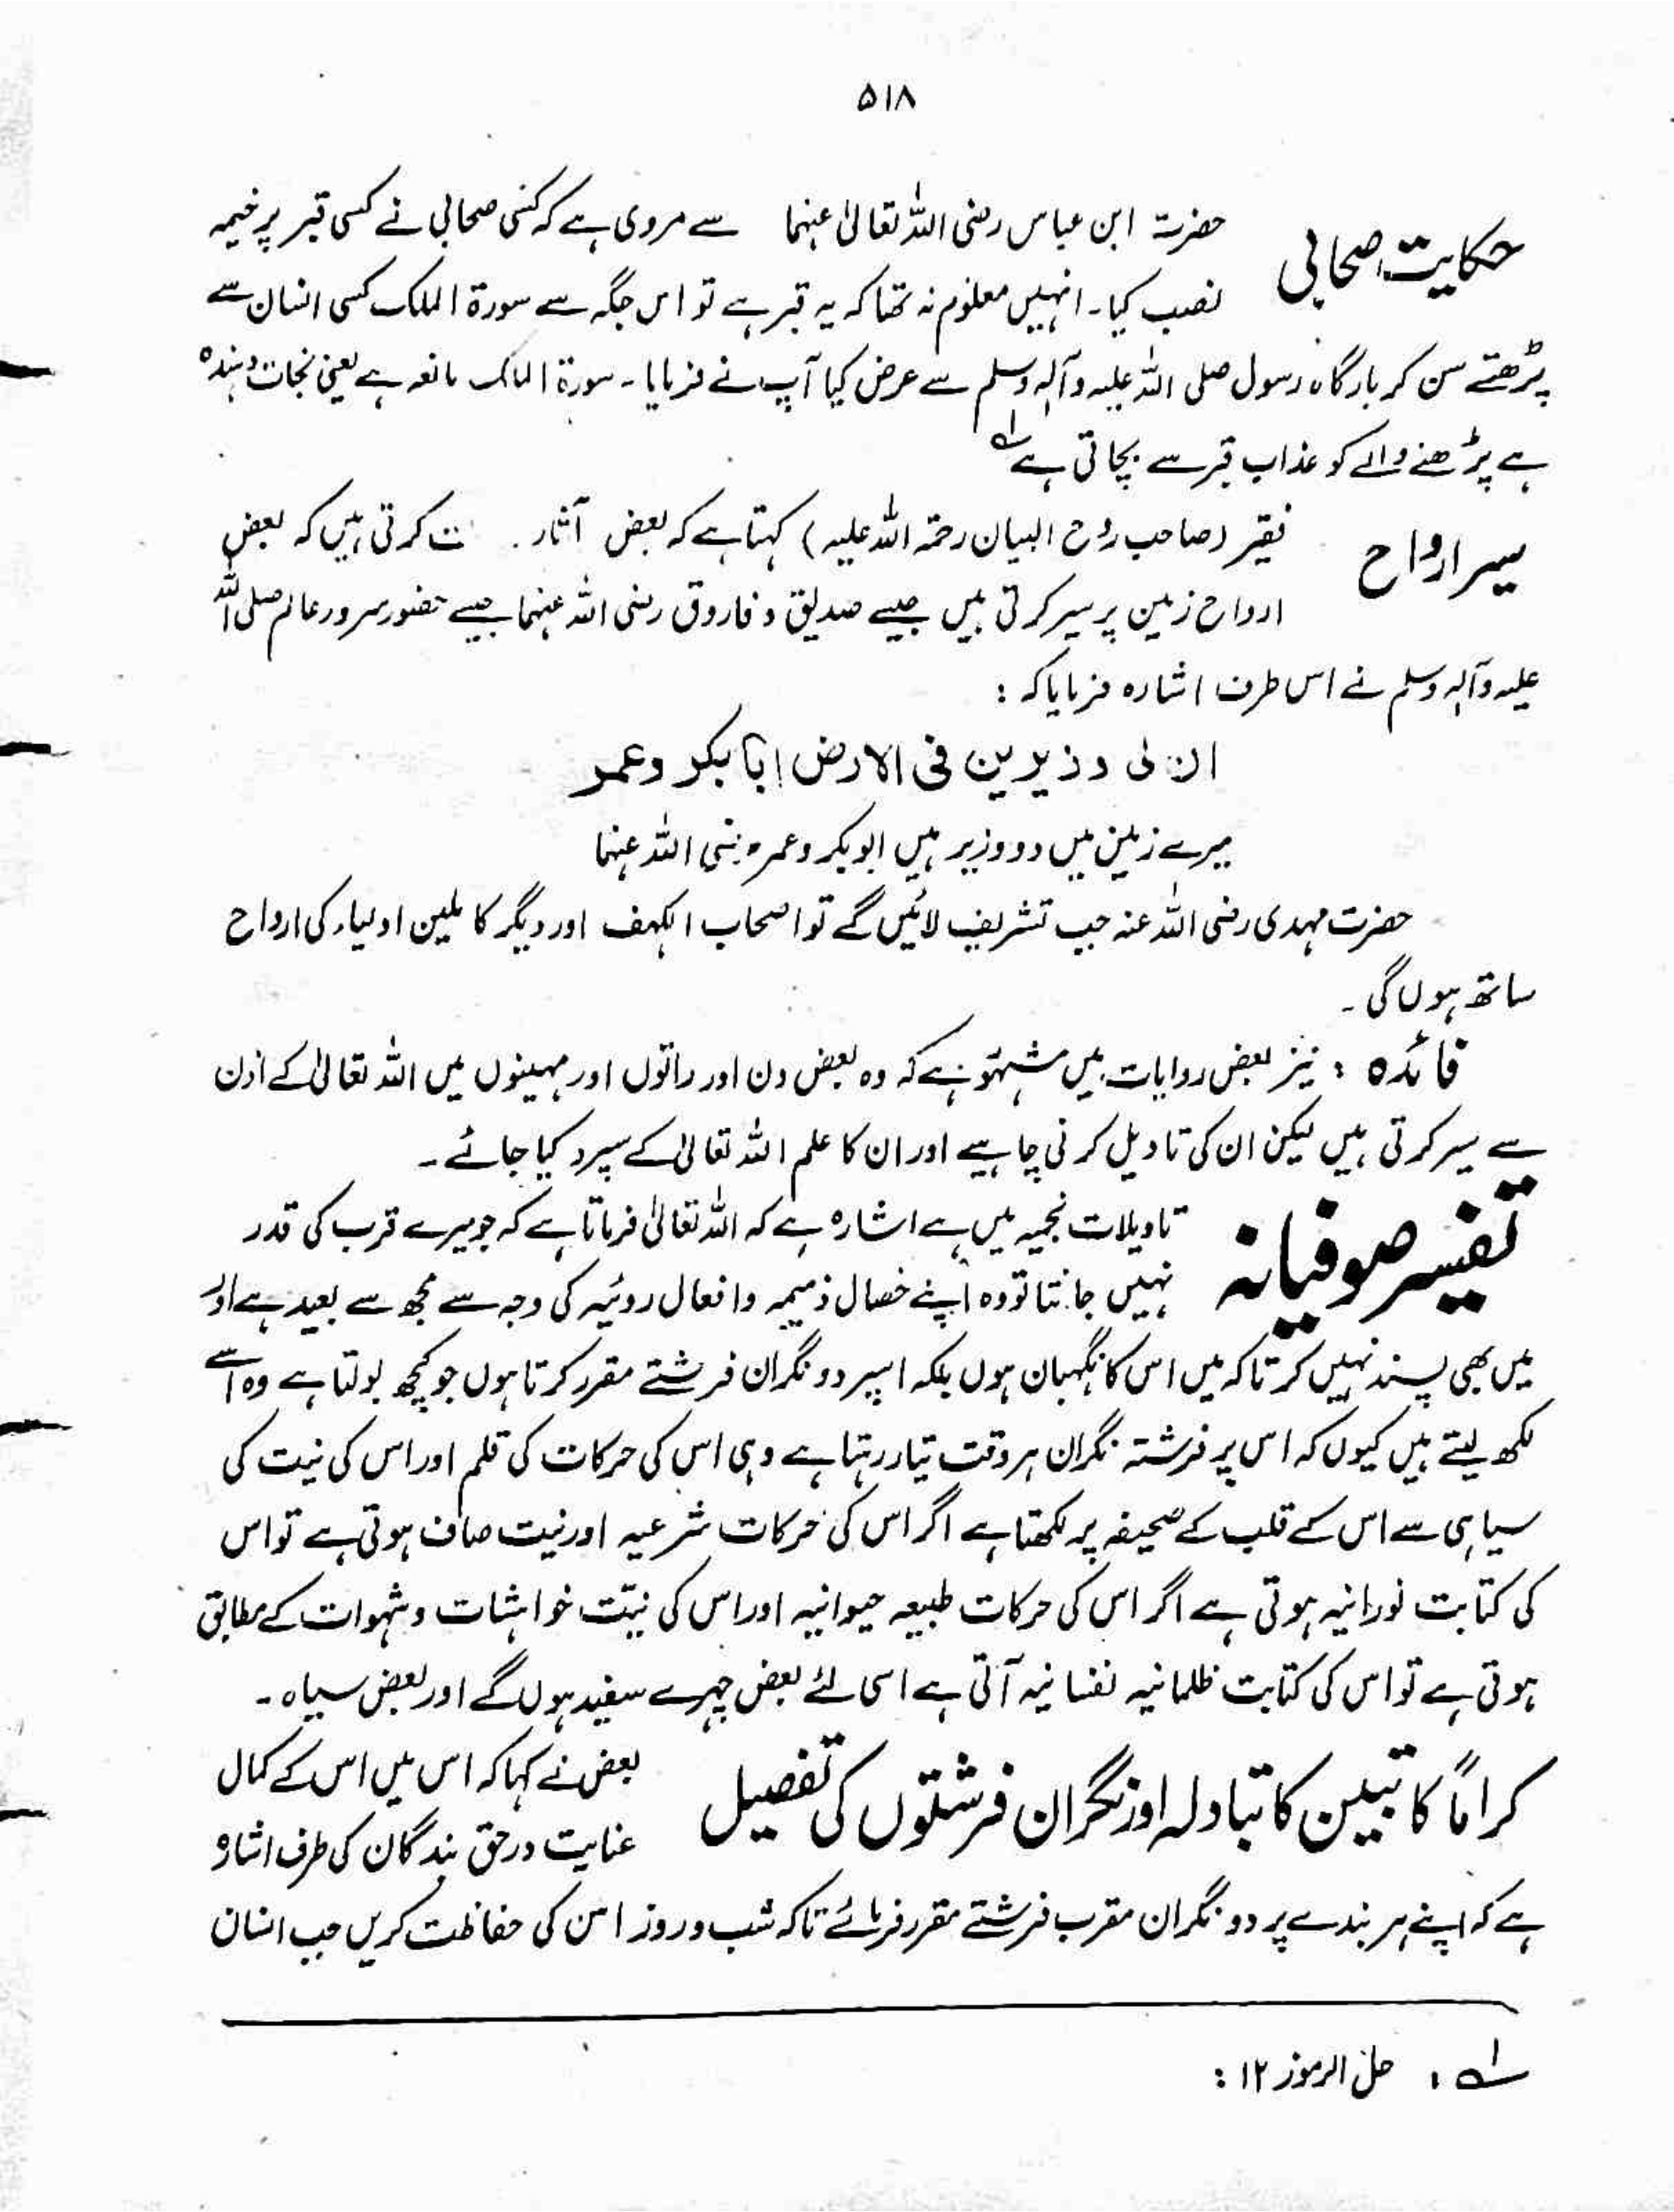 ۵۱۸
حکایت صحابی
حضرت ابن عباس رضی اللہ تعالیٰ عنہما سے مروی ہے کہ کسی صحابی نے کسی قبر پر خیمہ
نصب کیا۔ انہیں معلوم نہ تھا کہ یہ قبر ہے تو اس جگہ سے سورۃ الملک کسی انسان سے
پڑھتے سن کر بارگاہ رسول صلی اللہ علیہ وآلہ وسلم سے عرض کیا آپ نے فرمایا۔ سورۃ الملک مانعہ ہے یعنی نجات دہندہ
ہے پڑھنے والے کو عذاب قبر سے بچاتی ہے ۱ے
سیر ارواح
فقیر (صاحب روح البیان رحمۃ اللہ علیہ) کہتا ہے کہ بعض آثار ت کرتی ہیں کہ بعض
ارواح زمین پر سیر کرتی ہیں جیسے صدیق و فاروق رضی اللہ عنہما جیسے حضور سرور عالم صلی اللہ
علیہ وآلہ وسلم نے اس طرف اشارہ فرمایا کہ :
ان لی وزیرین فی الارض ابا بکر وعمر
میرے زمین میں دو وزیر ہیں ابوبکر و عمر رضی اللہ عنہما
حضرت مہدی رضی اللہ عنہ جب تشریف لائیں گے تو اصحاب الکہف اور دیگر کاملین اولیاء کی ارواح
ساتھ ہوں گی۔
فائدہ : نیز بعض روایات میں مشہور ہے کہ وہ بعض دن اور راتوں اور مہینوں میں اللہ تعالیٰ کے اذن
سے سیر کرتی ہیں لیکن ان کی تاویل کرنی چاہیے اور ان کا علم اللہ تعالیٰ کے سپرد کیا جائے۔
تفسیر صوفیانہ
تاویلات نجمیہ میں ہے اشارہ ہے کہ اللہ تعالیٰ فرماتا ہے کہ جو میرے قرب کی قدر
نہیں جانتا تو وہ اپنے خصال ذمیمہ وافعال روئیہ کی وجہ سے مجھ سے بعید ہے اور
میں بھی پسند نہیں کرتا کہ میں اس کا نگہبان ہوں بلکہ اسپر دو نگران فرشتے مقرر کرتا ہوں جو کچھ بولتا ہے وہ اسے
لکھ لیتے ہیں کیوں کہ اس پر فرشتہ نگران ہر وقت تیار رہتا ہے وہی اس کی حرکات کی قلم اور اس کی نیت کی
سیاہی سے اس کے قلب کے صحیفہ پر لکھتا ہے اگر اس کی حرکات شرعیہ اور نیت صاف ہوتی ہے تو اس
کی کتابت نورانیہ ہوتی ہے اگر اس کی حرکات طبیعہ حیوانیہ اور اس کی نیت خواہشات و شہوات کے مطابق
ہوتی ہے تو اس کی کتابت ظلمانیہ نفسانیہ آتی ہے اسی لئے بعض چہرے سفید ہوں گے اور بعض سیاہ۔
کراماً کاتبین کا تبادلہ اور نگران فرشتوں کی تفصیل
بعض نے کہا کہ اس میں اس کے کمال
عنایت درحق بندگان کی طرف اشارہ
ہے کہ اپنے ہر بندے پر دو نگران مقرب فرشتے مقرر فرمائے تاکہ شب و روز اس کی حفاظت کریں جب انسان
۱ے ، حل الرموز ۱۲ :